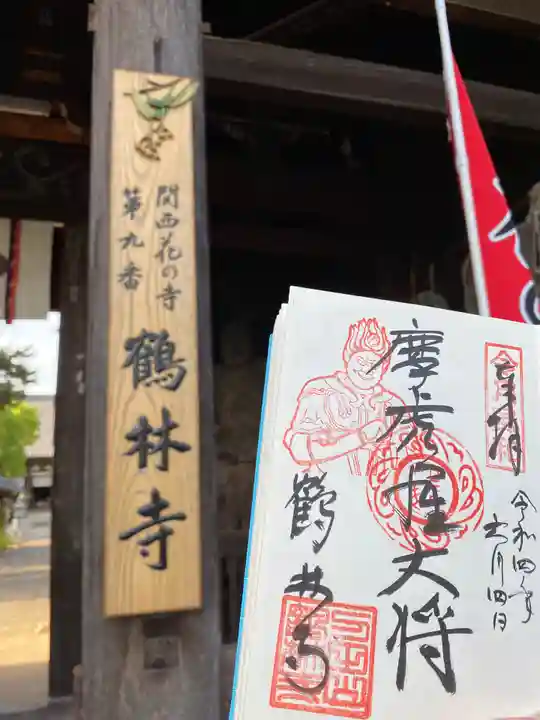 関西花の寺
第九番
鶴林寺
奉拝
令和四年
五月四日
摩虎羅大将
鶴林寺